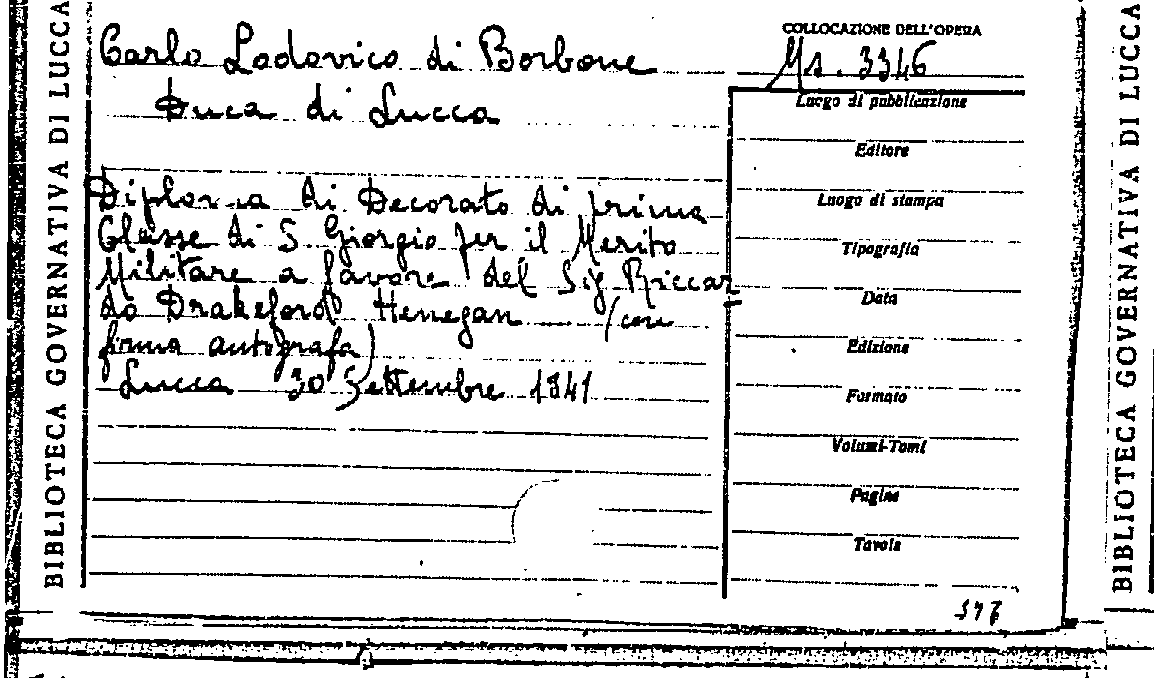 BIBLIOTECA GOVERNATIVA DI LUCCA
Carlo Lodovico di Borbone
Duca di Lucca
Diploma di Decorato di prima
Classe di S Giorgio per il Merito
Militare a favore del Sig Riccar=
do Drakeford Henegan (con
firma autografa)
Lucca 30 Settembre 1841
COLLOCAZIONE DELL'OPERA
Ms. 3346
Luogo di pubblicazione
Editore
Luogo di stampa
Tipografia
Data
Edizione
Formato
Volumi-Tomi
Pagine
Tavole
BIBLIOTECA GOVERNATIVA DI LUCCA